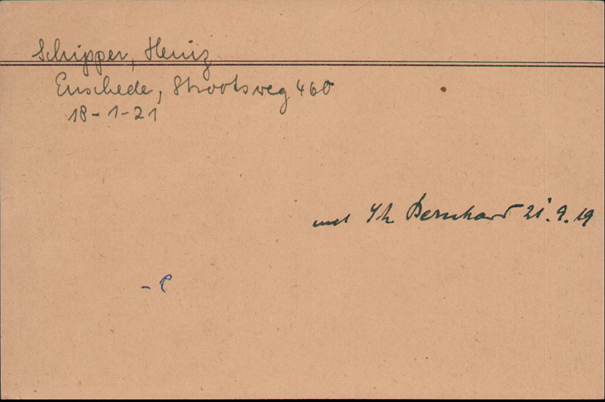 Schipper, Heinz
Enschede, Strootsweg 460
18-1-21
Bernhard 21.9.19